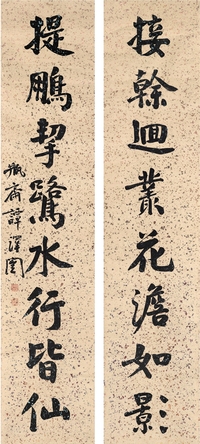 接榦迴叢花澹如影
提鵬挈鷺水行皆仙
瓶齋譚澤闓